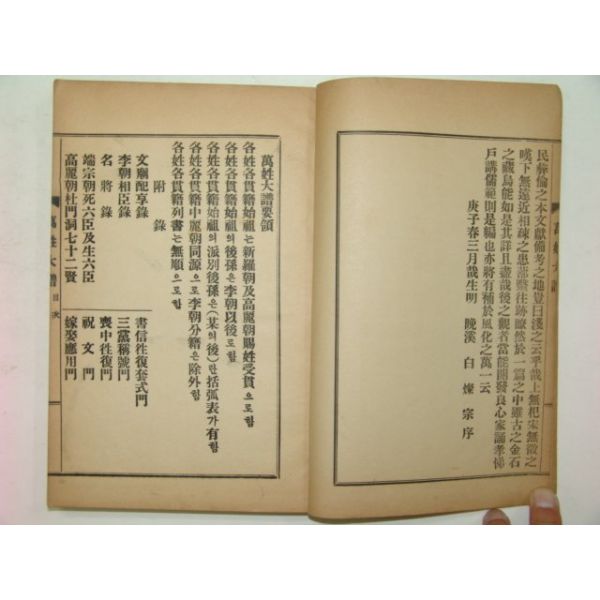 民彛倫之本文獻備考之地豈曰淺之云乎哉上無杞宋無徵之
嘆下無遠近相疎之患蔀蔽往跡瞭然於一篇之中雖古之金石
之藏烏能如是其詳且盡哉後之觀者當能開發良心家誦孝悌
戶講儒範則是編也亦將有補於風化之萬一云
庚子春三月哉生明 晩溪 白燦宗 序
萬姓大譜要領
各姓各貫籍始祖는新羅朝及高麗朝賜姓受貫으로함
各姓各貫籍始祖의後孫은李朝以後로함
各姓各貫籍始祖의派別後孫은(某의後)란括弧表가有함
各姓各貫籍中麗朝同源으로李朝分籍은除外함
各姓各貫籍列書는無順으로함
附錄
文廟配享錄
李朝相臣錄
名將錄
端宗朝死六臣及生六臣
高麗朝杜門洞七十二賢
書信徃復套式門
三黨稱號門
喪中徃復門
祝文門
嫁娶應用門
萬姓大譜 目次